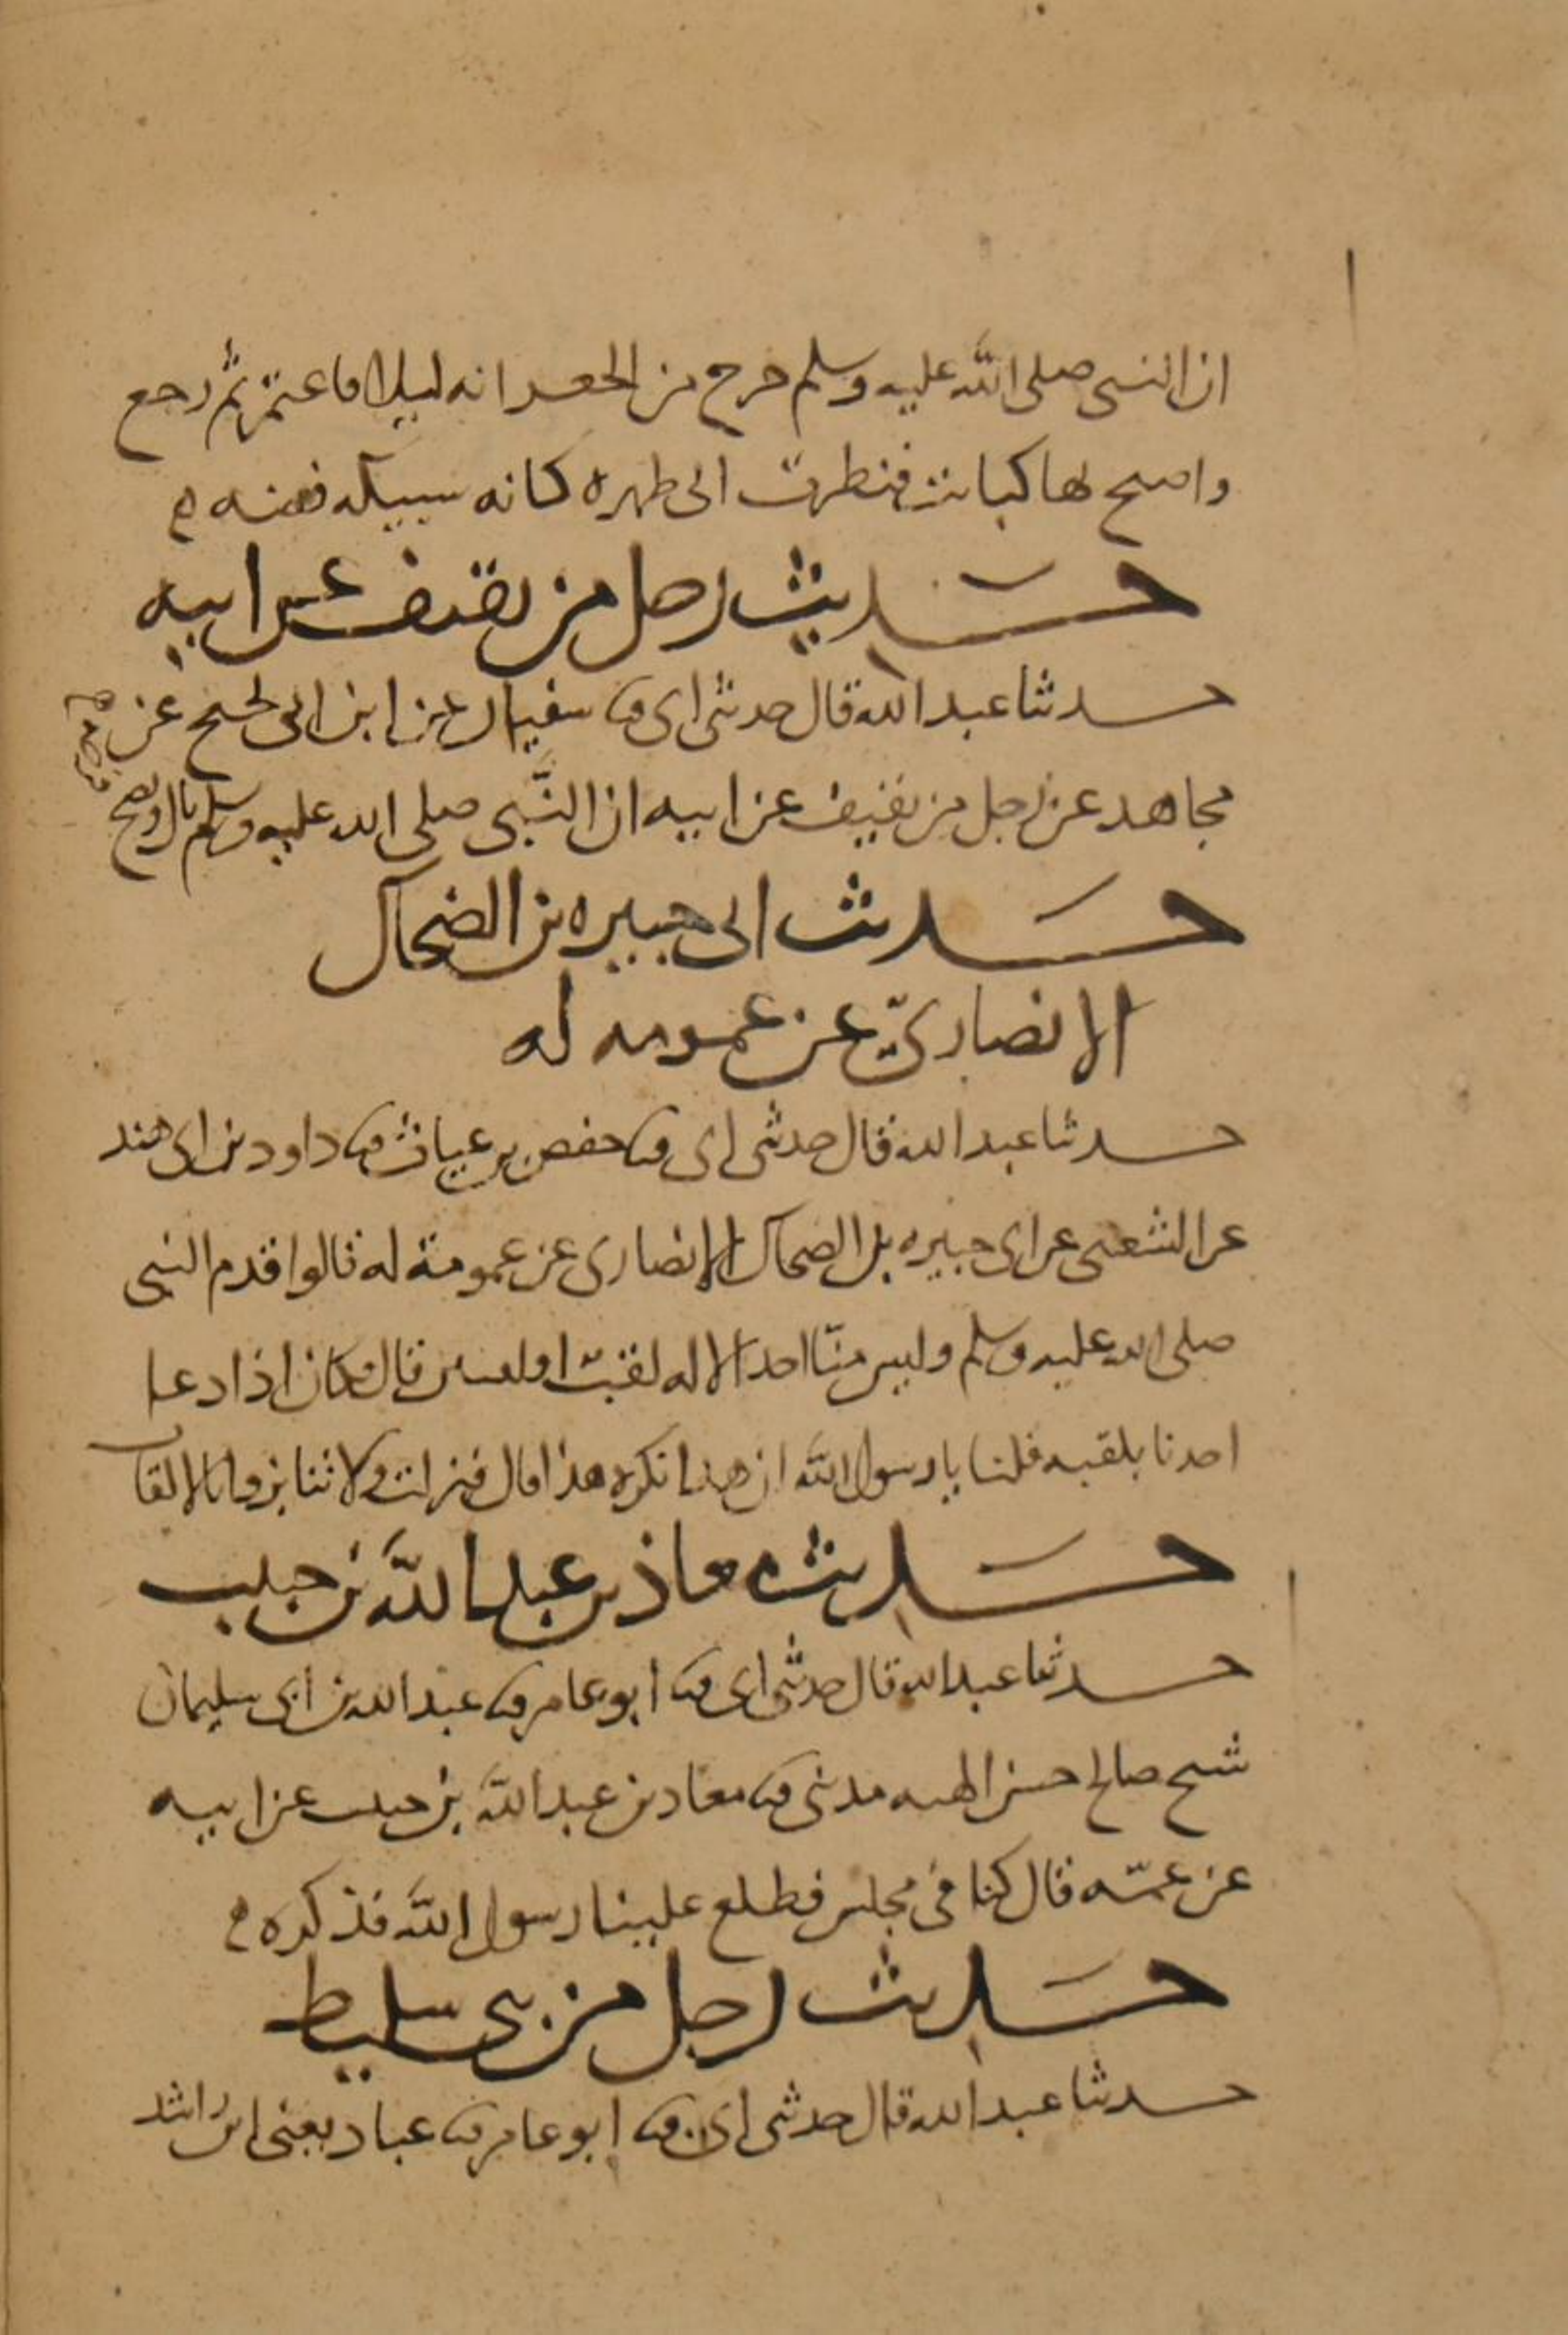 ان النبى صلى الله عليه وسلم خرج من الجعرانه ليلا فاعتمر ثم رجع
واصبح بها كبائت فنظرت الى ظهره كانه سبيكه فضه
حديث رجل من ثقيف عن ابيه
حدثنا عبد الله قال حدثنى ابى ثنا سفيان عن ابن ابى نجيح عن
مجاهد عن رجل من ثقيف عن ابيه ان النبى صلى الله عليه وسلم بال ونضح
فرجه
حديث ابى جبيره بن الضحاك
الانصارى عن عمومه له
حدثنا عبد الله قال حدثنى ابى ثنا حفص بن غياث ثنا داود بن ابى هند
عن الشعبى عن ابى جبيره بن الضحاك الانصارى عن عمومة له قالوا قدم النبى
صلى الله عليه وسلم وليس منا احد الا له لقب او لقبين قال فكان اذا دعا
احدنا بلقبه قلنا يا رسول الله ان هذا نكره هذا قال فنزلت ولا تنابزوا بالالقاب
حديث معاذ بن عبد الله بن خبيب
حدثنا عبد الله قال حدثنى ابى ثنا ابو عامر ثنا عبد الله بن ابى سليمان
شيخ صالح حسن الهيه مدنى ثنا معاذ بن عبد الله بن خبيب عن ابيه
عن عمه قال كنا فى مجلس فطلع علينا رسول الله فذكره
حديث رجل من بنى سليط
حدثنا عبد الله قال حدثنى ابى ثنا ابو عامر ثنا عباد يعنى ابن راشد